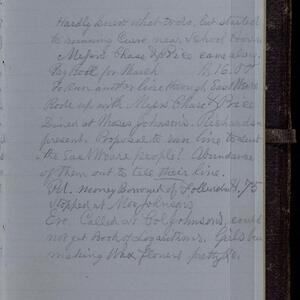 Hardly knew what to do, but started
to running Curve near School House
Messrs Chase & Price came along.
Pay Roll for March
To run another line through East Weare
Rode up with Messrs Chase & Price
Dined at Moses Johnsons. Richardson
present. Proposal to run line to suit
the East Weare people! Abundance
of them out to take their line.
Pd. money Borrowed of Follansbee .75
Stopped at Moses Johnsons
Eve. Called at Col Johnsons, could
not get Book of Logarithms. Girls
making Wax flowers pretty &c.